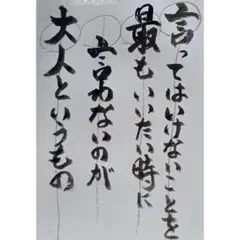 言ってはいけないことを
最もいいたい時に
言わないのが
大人というもの